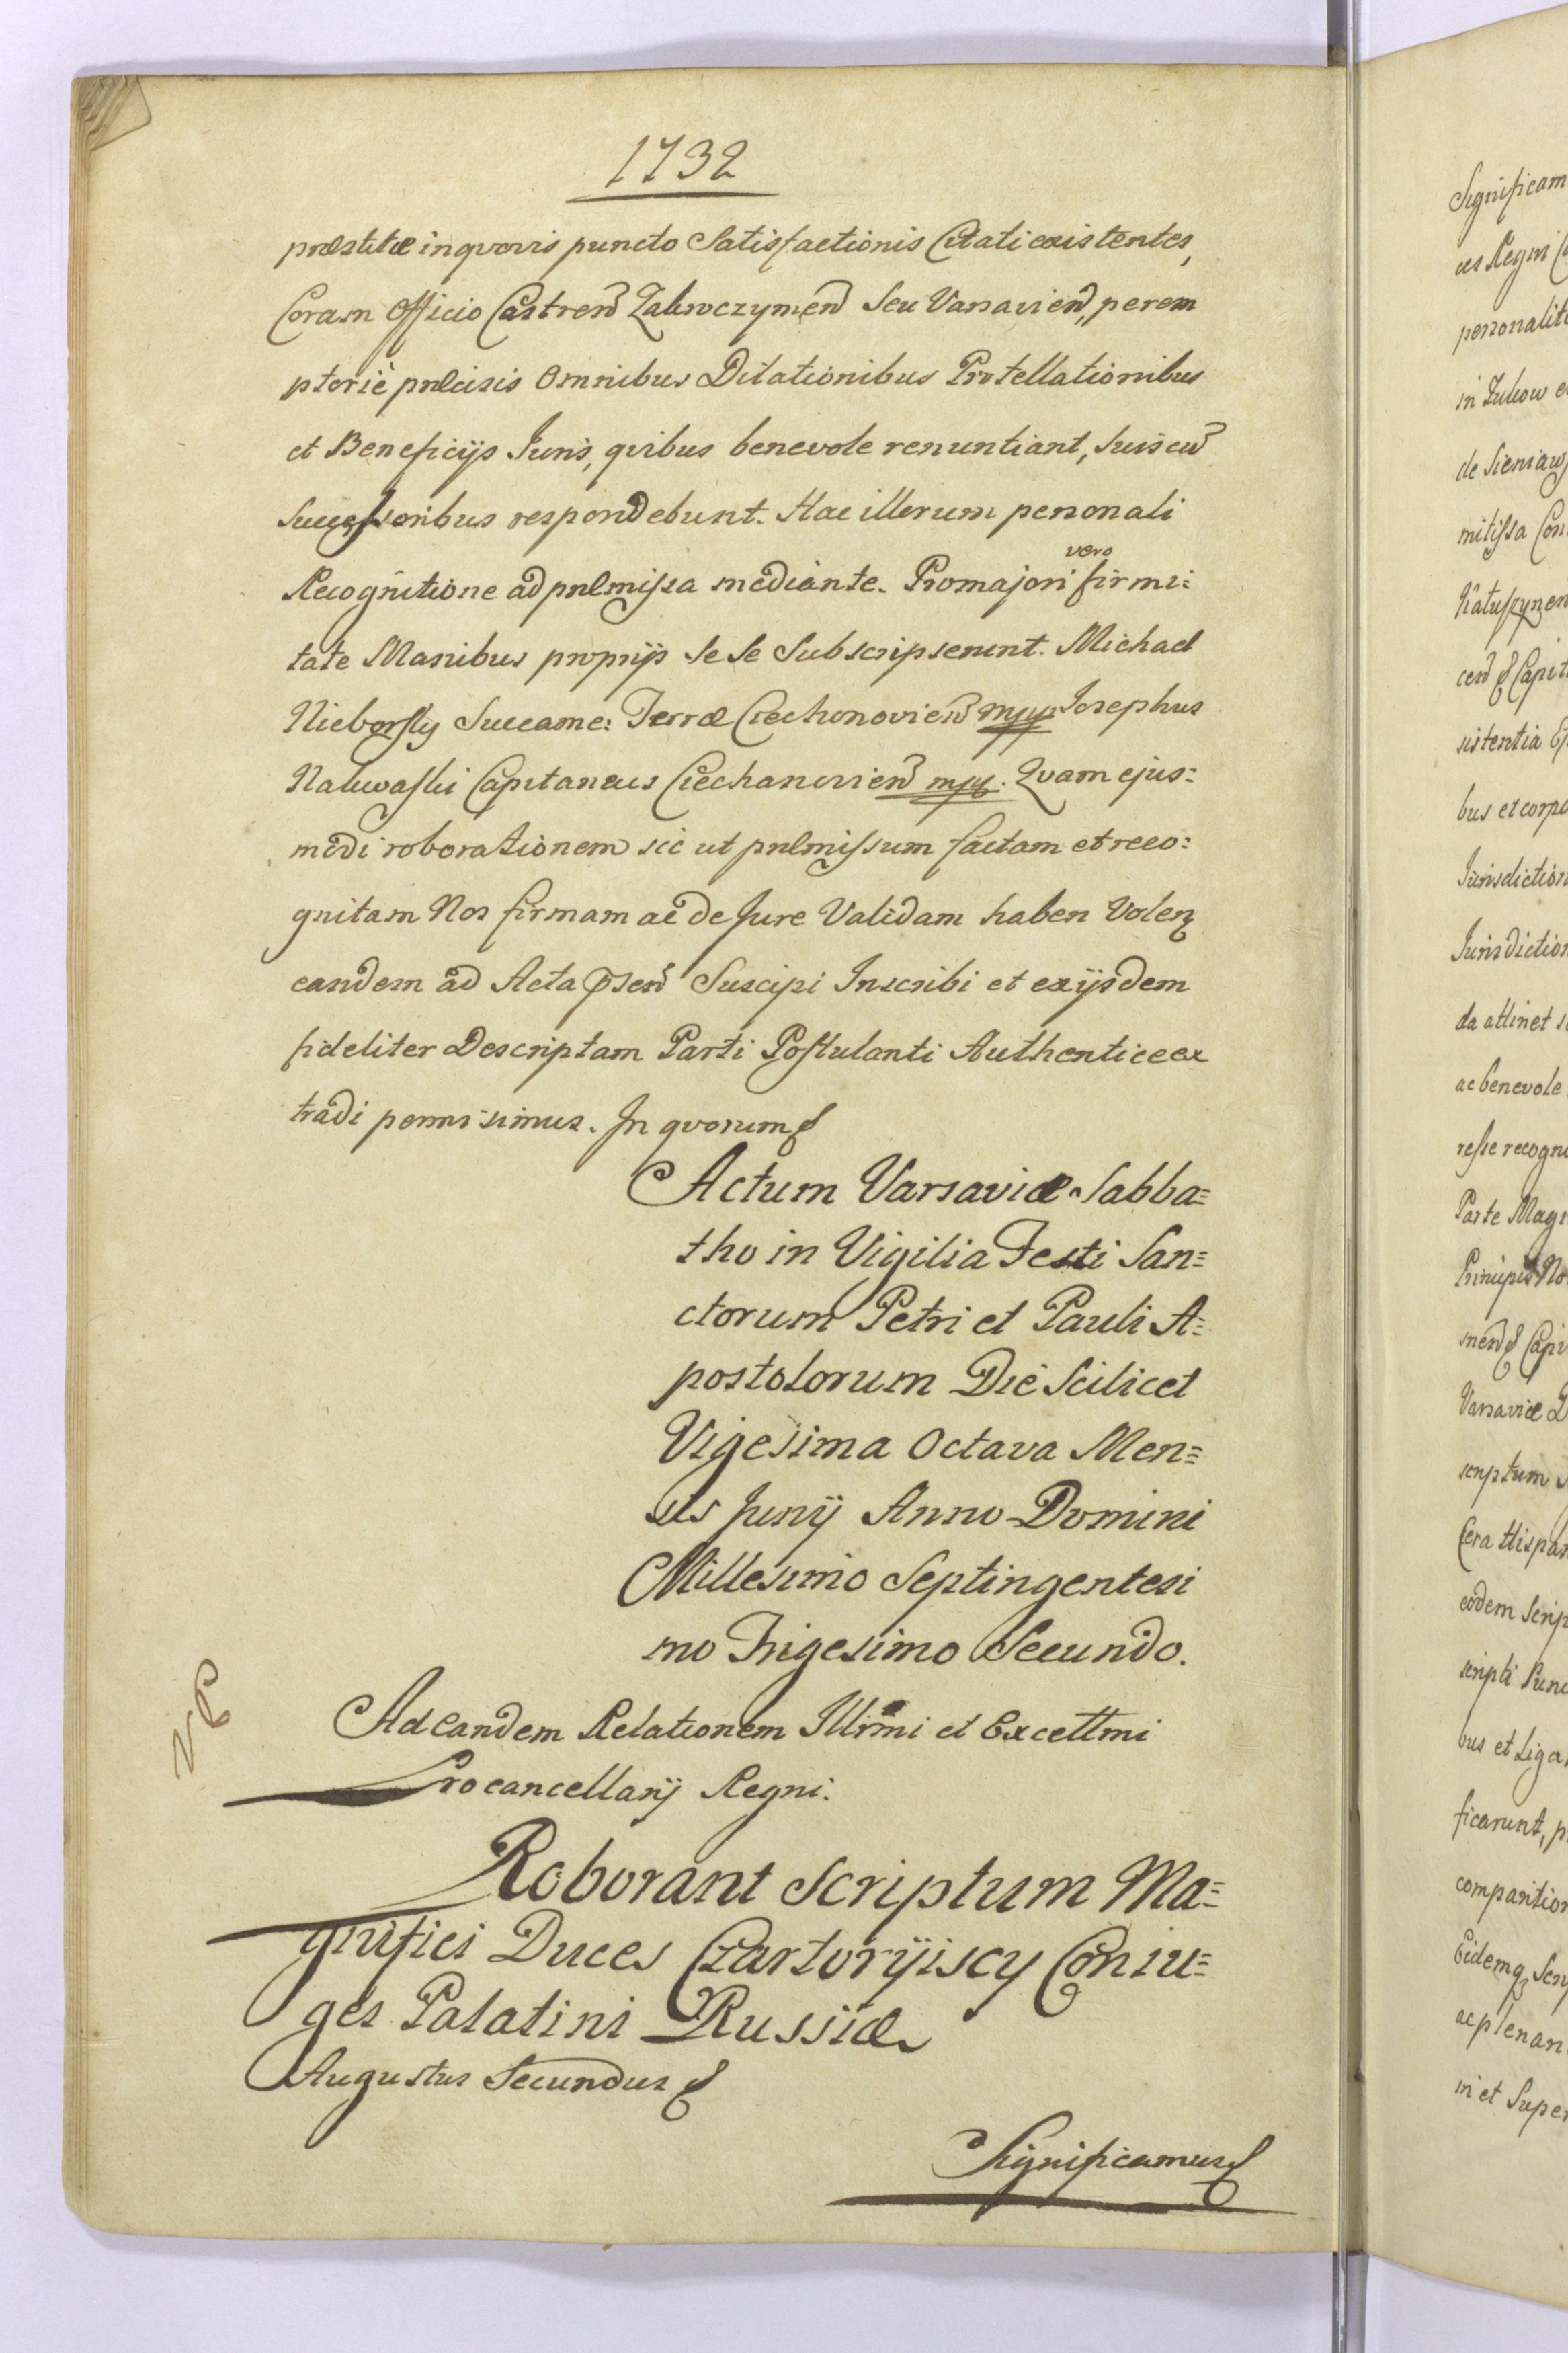 1732
præstitæ in quovis puncto Satisfactionis Citati existentes,
Coram Officio Castren Zakroczymen Seu Varsavien, perem
ptoriè præcisis Omnibus Dilationibus Protellationibus
et Beneficijs Juris, quibus benevole renuntiant, Suis cum
Successoribus respondebunt. Hac illorum personali
Recognitione ad præmissa mediante. Pro majori vero firmi=
tate Manibus proprijs Se Se Subscripserunt. Michael
Nieborsky Succame: Terræ Ciechonovien mpp Josephus
Nakwaski Capitaneus Ciechanovien mpp. Quam ejus=
modi roborationem sic ut præmissum factam et reco=
gnitam Nos firmam ac de Jure Validam haberi Volen
eandem ad Acta Suscipi Inscribi et ex ijsdem
fideliter Descriptam Parti Postulanti Authentice ex
tradi permisimus. In quorum
Actum Varsaviæ Sabba=
tho in Vigilia Festi San=
ctorum Petri et Pauli A=
postolorum Die Scilicet
Vigesima Octava Men=
sis Junij Anno Domini
Millesimo Septingentesi
mo Trigesimo Secundo.
Ad eandem Relationem Illrmi et Excellmi
Procancellarij Regni.
Roborant Scriptum Ma=
gnifici Duces Czartoryiscy Coniu=
ges Palatini Russiæ
Augustus Secundus
Significamus
Significam
personalit
in Zukow
Jurisdiction
Jurisdiction
da attinet
ac benevole
Parte Mag
Varsaviæ
scriptum
eodem Scrip
scripti Punc
ficarunt, p
comparition
ac plenan